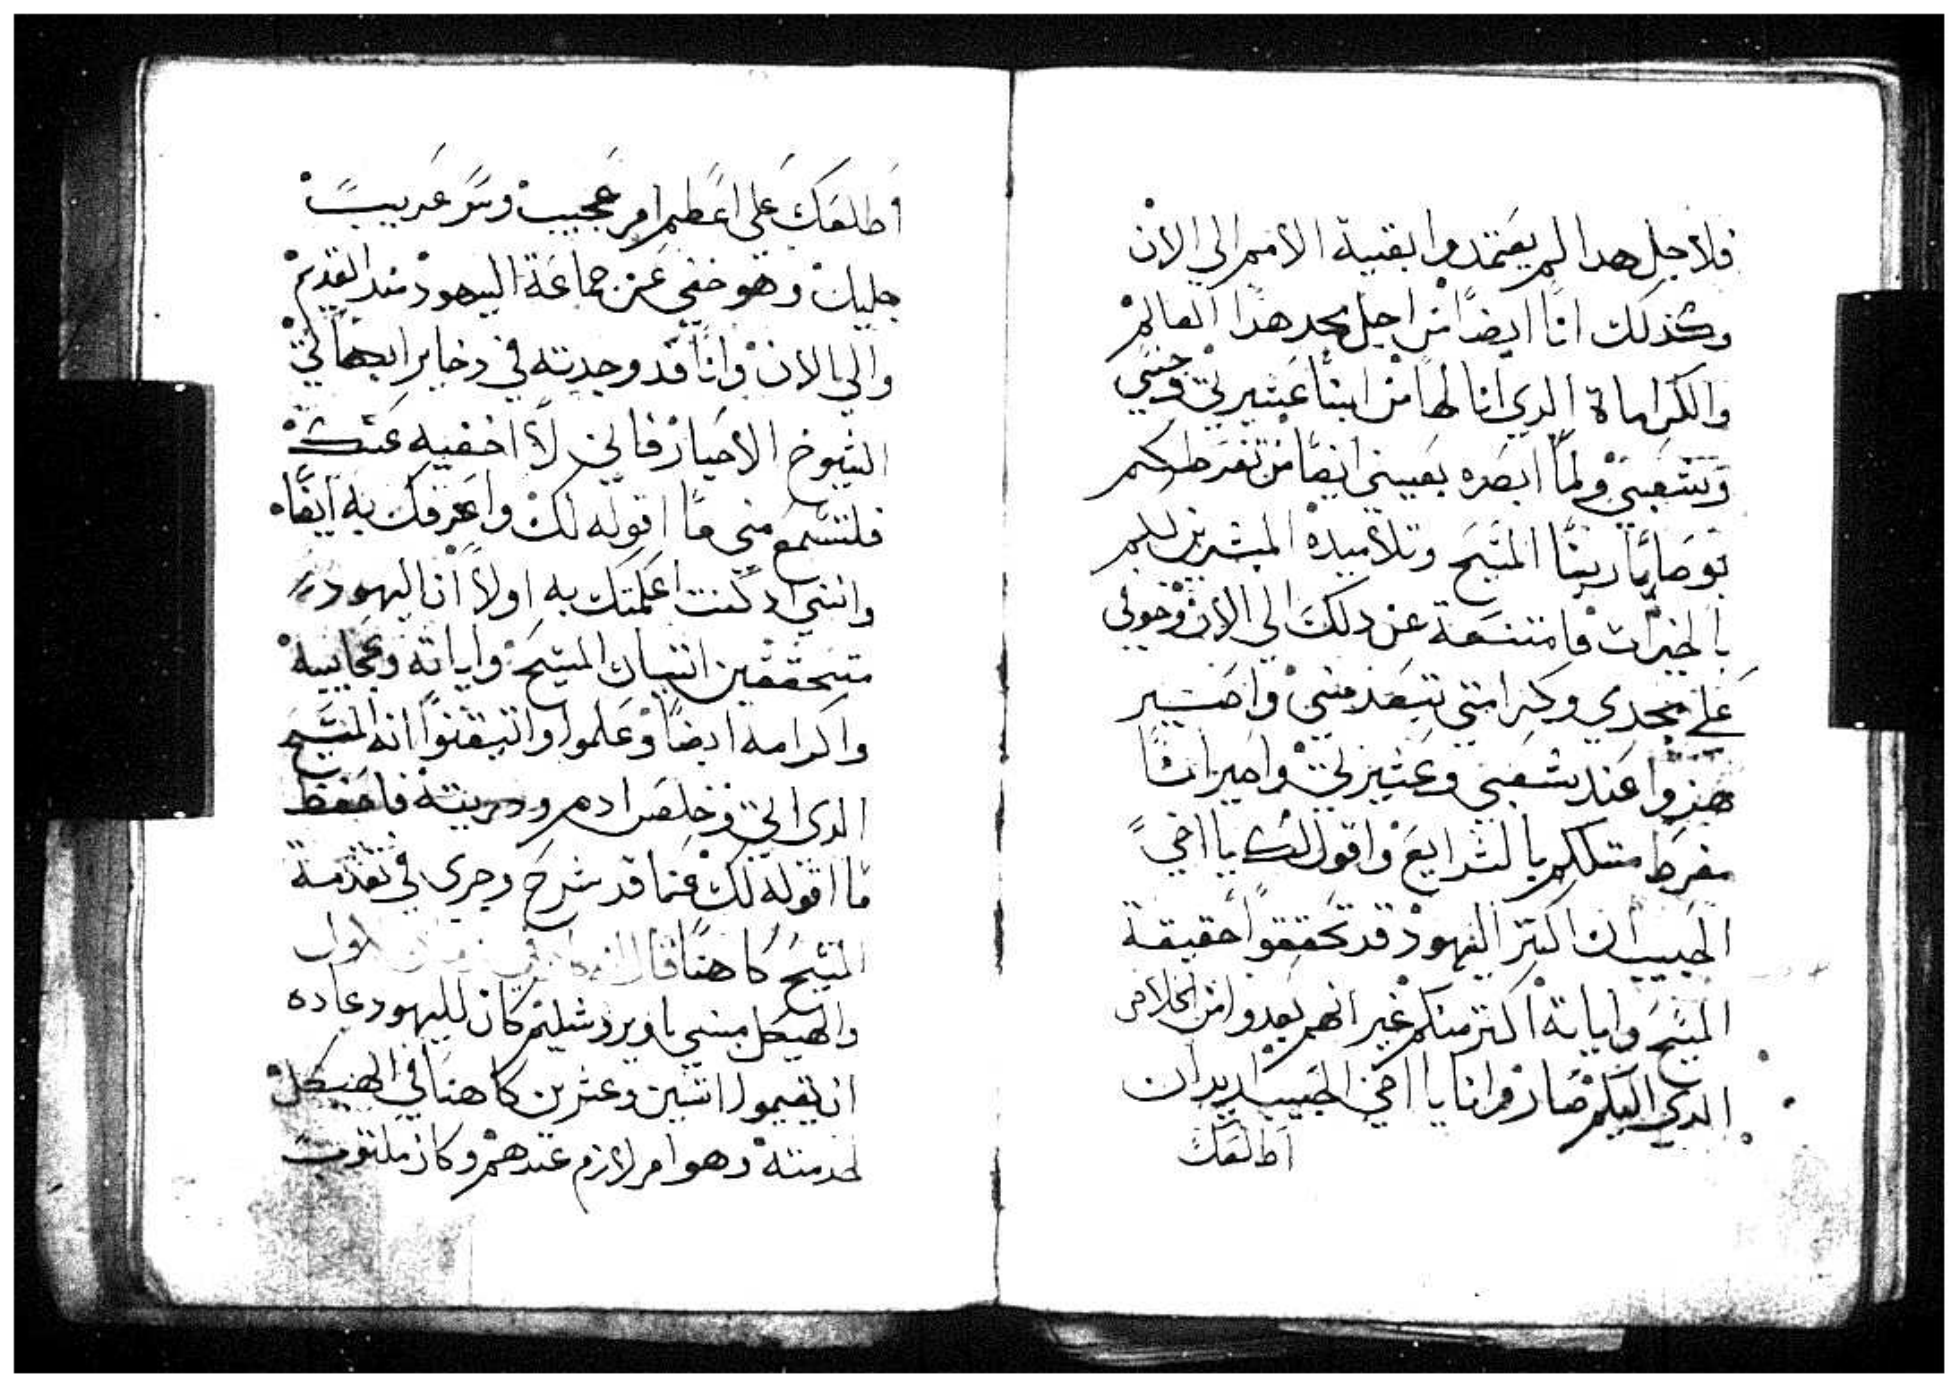 فلاجل هدا لم يعتمدوا بقية الامم الي الان
وكذلك انا ايضا من اجل مجد هذا العالم
والكرامة الدي انا لها من ابنا عشيرتي وجنسي
وشعبي ولما ابصره بعيني ايضا من تفرطكم
بوصايا ربنا المسيح وتلاميده المبشرين لكم
بالخيرات فامتنعة عن دلك الي الان وخوفي
علي مجدي وكرامتي تبعد مني واصير
هزوا عند شعبي وعشيرتي واصير انا
مفرط متلكم بالشرايع واقول لك يا اخي
الحبيب ان اكتر اليهود قد تحققوا حقيقة
المسيح واياته اكتر منكم غير انهم بعدوا من الخلاص
الدي اليكم صار وانا يا اخي الحبيب اريد ان
اطالعك
اطلعك علي اعظم امر عجيب وسر غريب
جليل وهو خفي عن جماعة اليهود مند القديم
والي الان وانا قد وجدته في دخاير
الشيوخ الاحبار فانني لا اخفيه عنك
فلتسمع مني ما اقوله لك واعرفك به ايضا
وانني اد كنت اعلمتك به اولا ان اليهود
متحققين اتيان المسيح واياته وعجايبه
واكرامه ايضا وعلموا واتيقنوا انه المسيح
الدي اتي وخلص ادم ودريته فاحفظ
ما اقوله لك عنما قد شرح وجري في تقدمة
المسيح كاهنا قال الاول
والهيكل مبني باويروشليم كان لليهود عاده
ان يقيموا اتنين وعشرين كاهنا في الهيكل
لخدمته وهو امر لازم عندهم وكان مكتوب